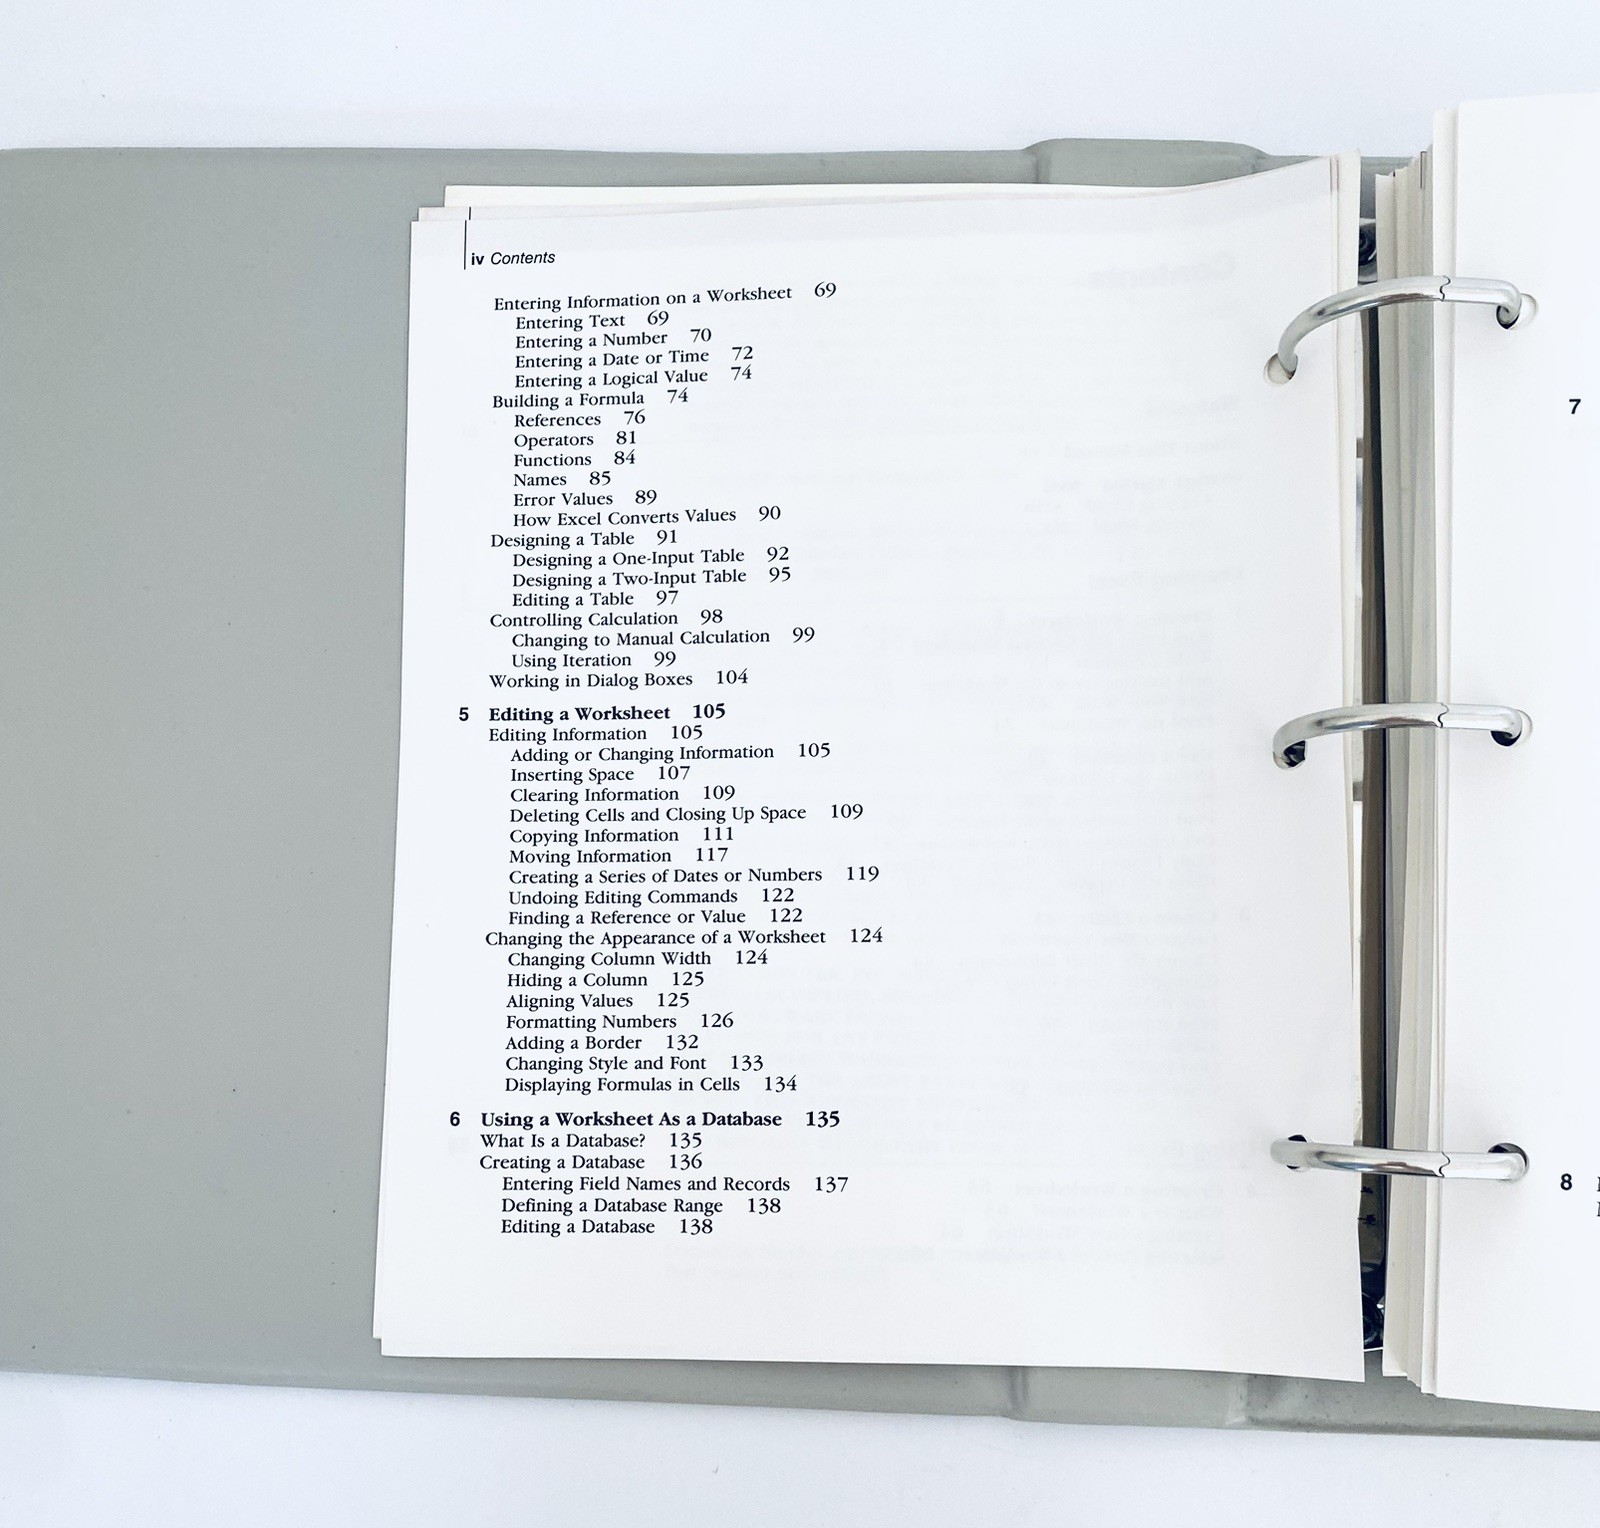 iv Contents
Entering Information on a Worksheet 69
Entering Text 69
Entering a Number 70
Entering a Date or Time 72
Entering a Logical Value 74
Building a Formula 74
References 76
Operators 81
Functions 84
Names 85
Error Values 89
How Excel Converts Values 90
Designing a Table 91
Designing a One-Input Table 92
Designing a Two-Input Table 95
Editing a Table 97
Controlling Calculation 98
Changing to Manual Calculation 99
Using Iteration 99
Working in Dialog Boxes 104
5 Editing a Worksheet 105
Editing Information 105
Adding or Changing Information 105
Inserting Space 107
Clearing Information 109
Deleting Cells and Closing Up Space 109
Copying Information 111
Moving Information 117
Creating a Series of Dates or Numbers 119
Undoing Editing Commands 122
Finding a Reference or Value 122
Changing the Appearance of a Worksheet 124
Changing Column Width 124
Hiding a Column 125
Aligning Values 125
Formatting Numbers 126
Adding a Border 132
Changing Style and Font 133
Displaying Formulas in Cells 134
6 Using a Worksheet As a Database 135
What Is a Database? 135
Creating a Database 136
Entering Field Names and Records 137
Defining a Database Range 138
Editing a Database 138
7
8